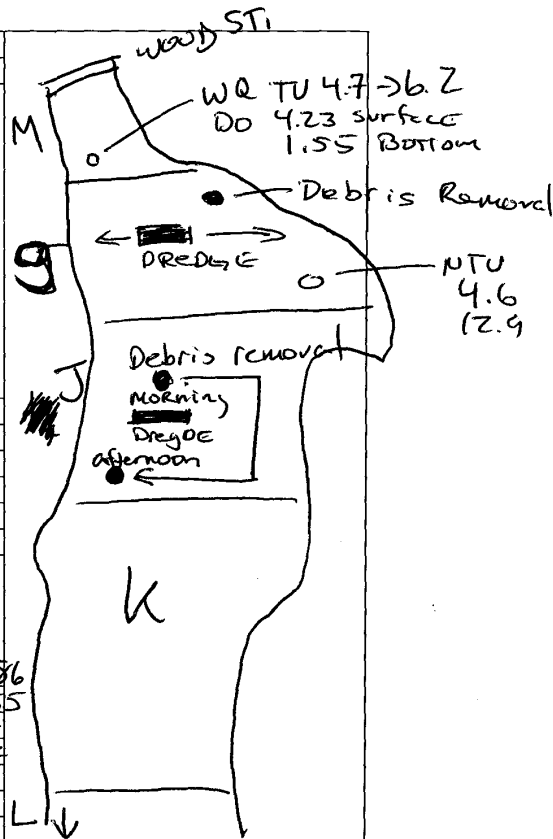 WOOD ST.
M
WQ TU 4.7->6.2
DO 4.23 surface
1.55 Bottom
Debris Removal
g
DREDGE
NTU
4.6
12.9
Debris removal
J
Morning
DregDE
afternoon
K
L